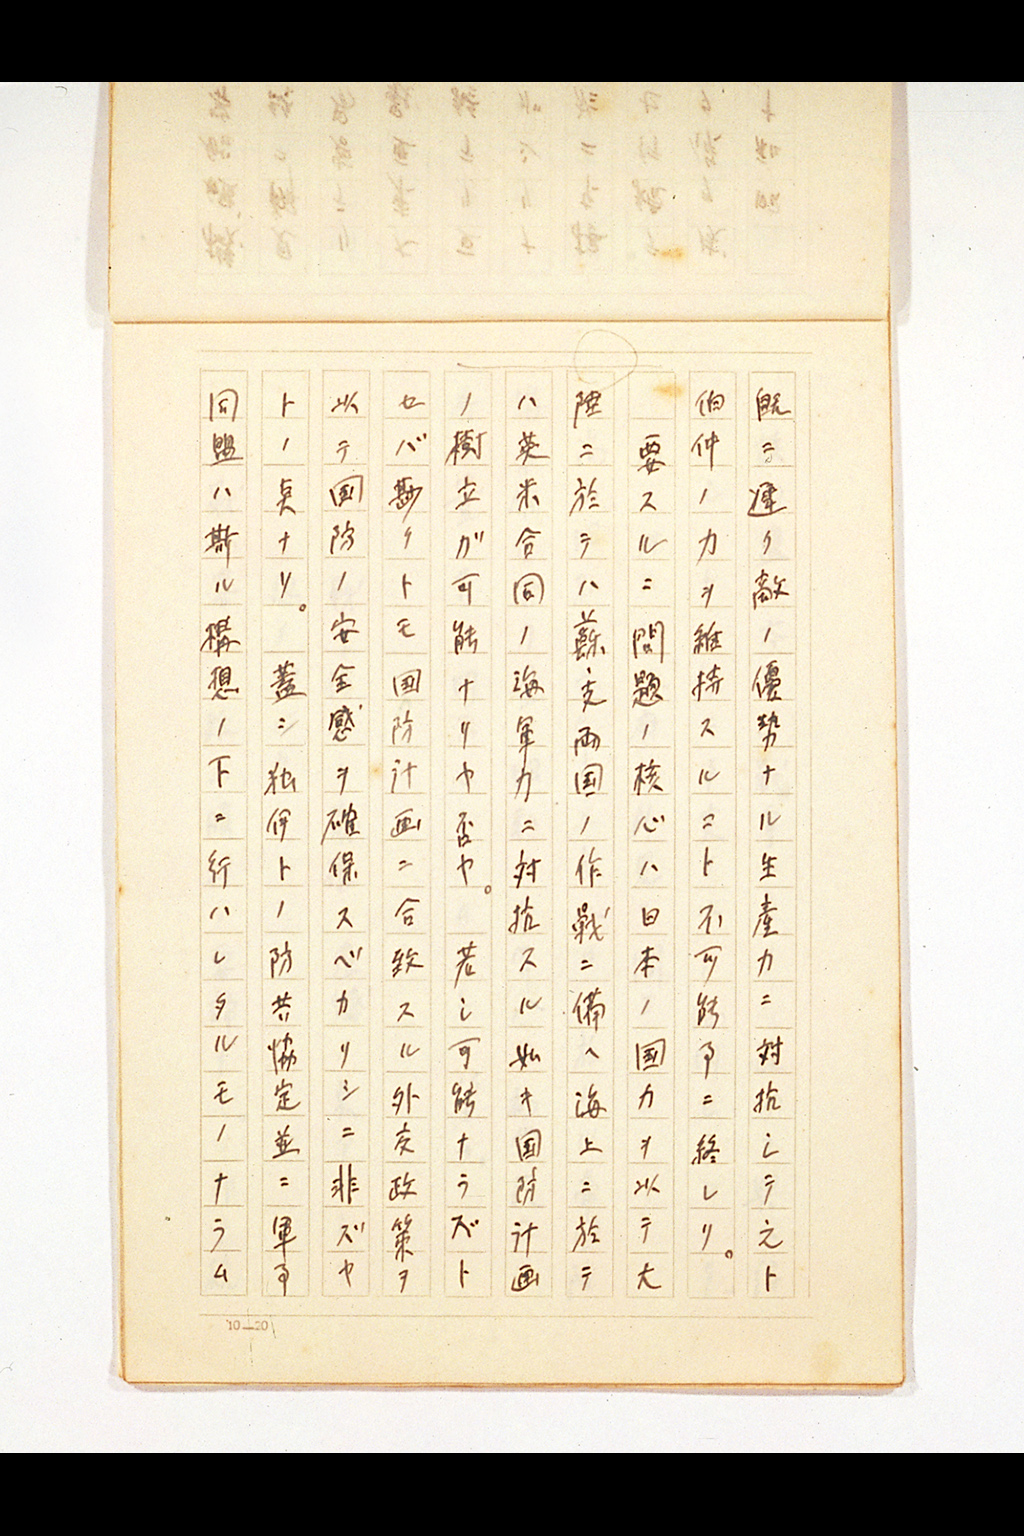 既ニ遅ク敵ノ優勢ナル生産力ニ対抗シテ之ト
伯仲ノ力ヲ維持スルコト不可能事ニ終レリ。
要スルニ問題ノ核心ハ日本ノ国力ヲ以テ大
陸ニ於テハ蘇支両国ノ作戦ニ備へ海上ニ於テ
ハ英米合同ノ海軍力ニ対抗スル如キ国防計画
ノ樹立ガ可能ナリヤ否ヤ。若シ可能ナラズト
セバ尠クトモ国防計画ニ合致スル外交政策ヲ
以テ国防ノ安全感ヲ確保スベカリシニ非ズヤ
トノ点ナリ。蓋シ独伊トノ防共協定並ニ軍事
同盟ハ斯ル構想ノ下ニ行ハレタルモノナラム
10—20